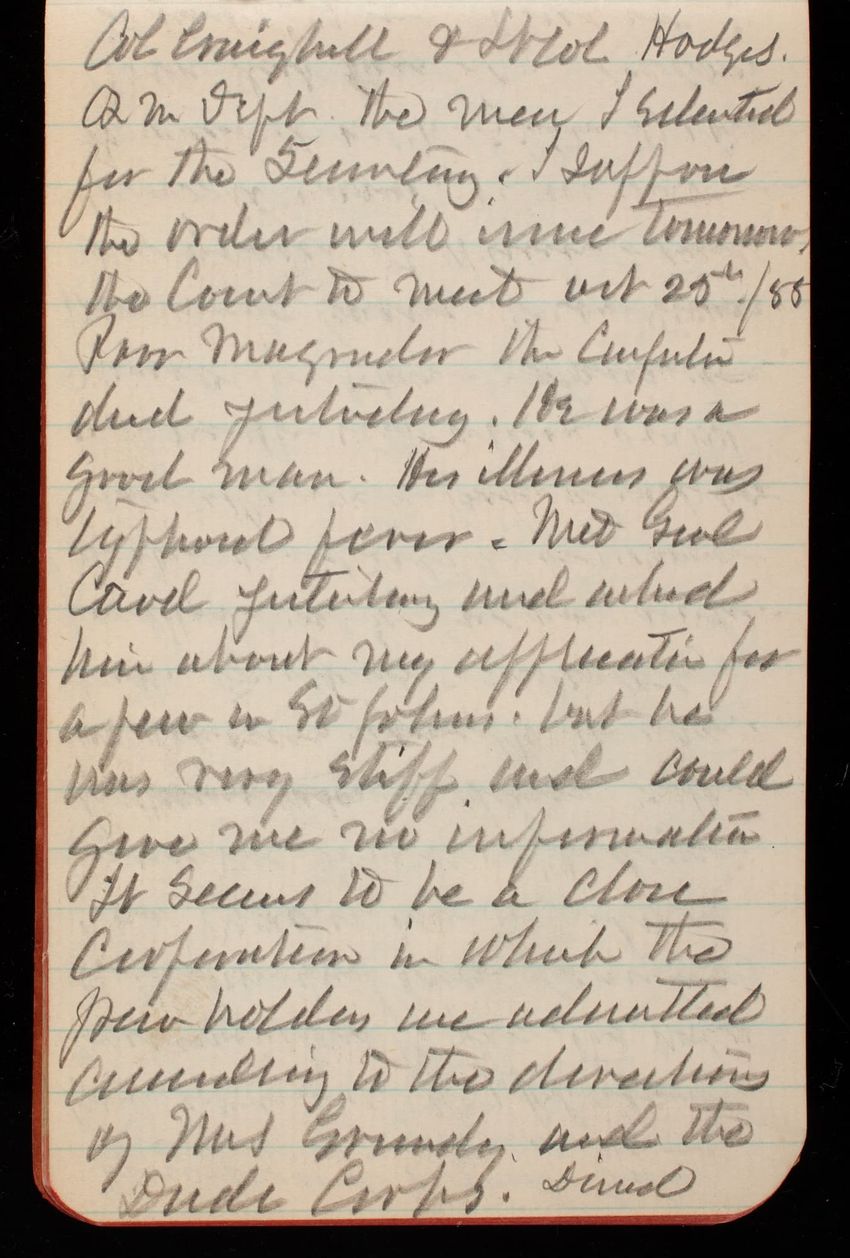 Col Craighill & Lt Col Hodges.
Q M Dept. the men I selected
for the Secretary. I suppose
the order will issue tomorrow,
the Court to meet oct 25th/88
Poor Magruder the Carpenter
died yesterday. He was a
good man. His illness was
typhoid fever. Met Genl
Casey yesterday and asked
him about my application for
a pew in St Johns. but he
was very stiff and could
give me no information
It seems to be a close
Corporation in which the
pew holders are admitted
according to the directions
of Mrs Grundy and the
Dude Corps. Dined